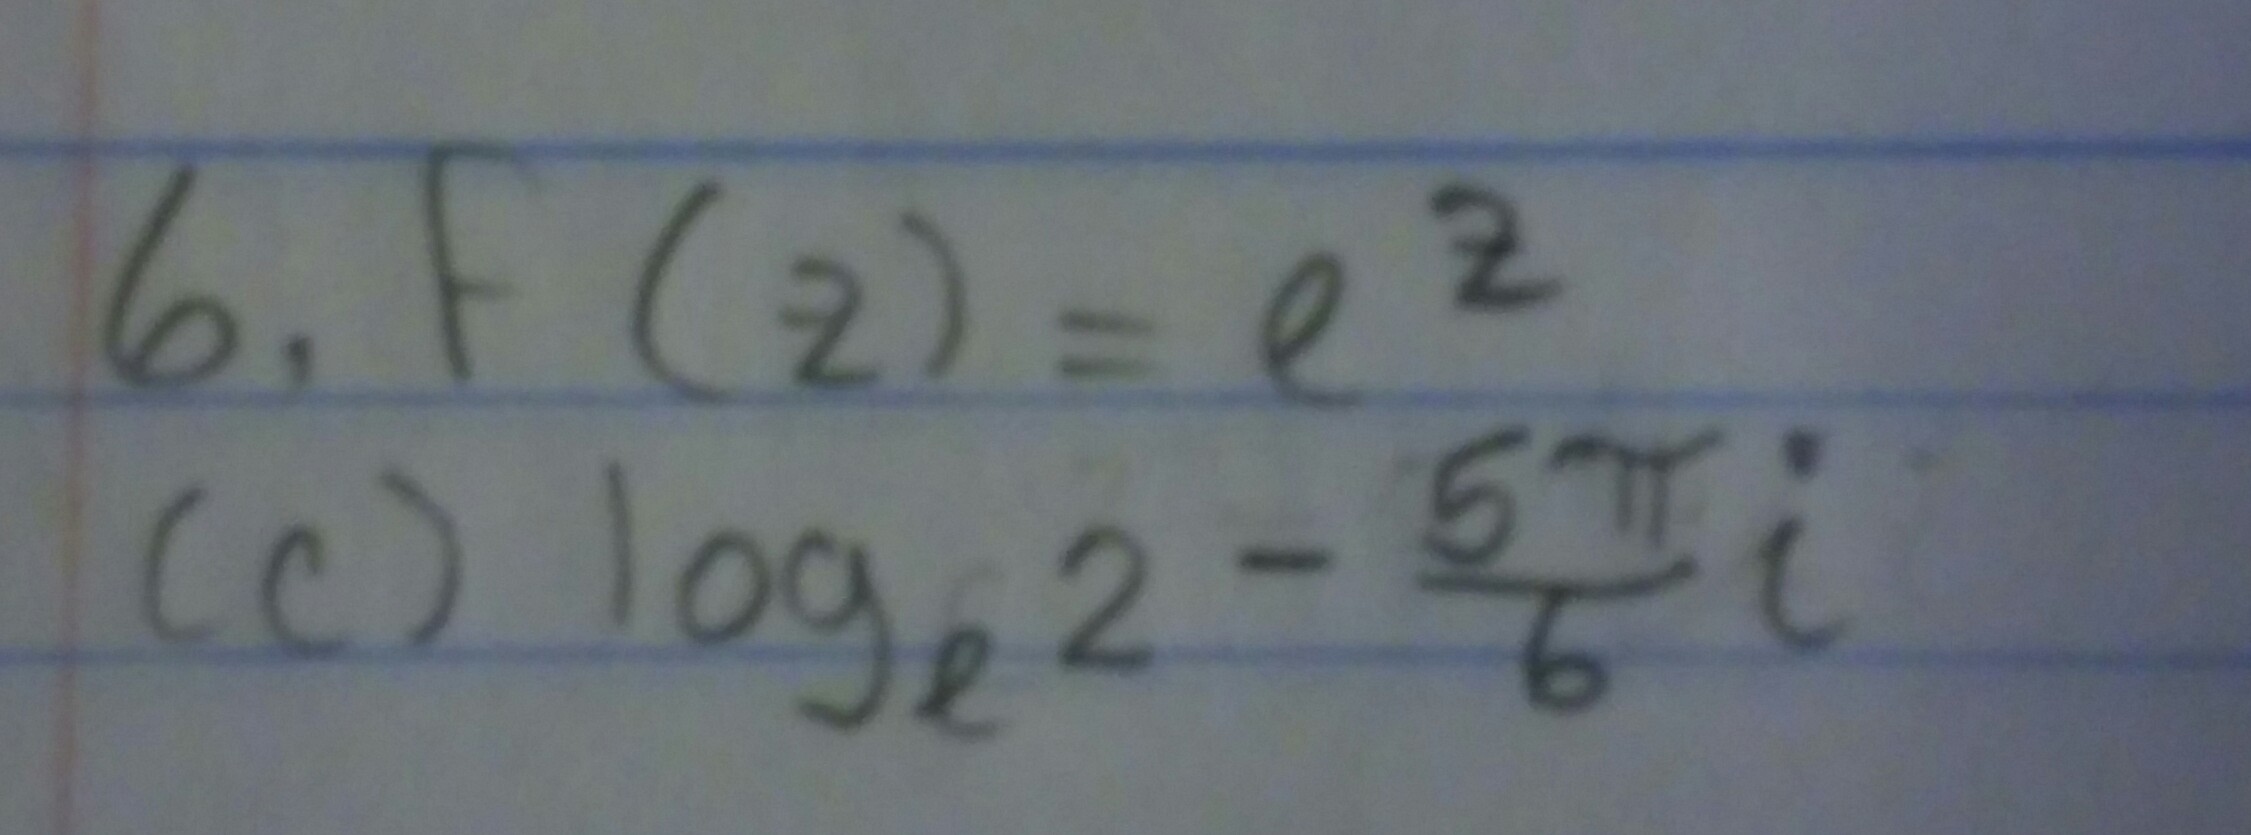 6. F(z) = e^z
(c) log_e 2 - 5π/6 i